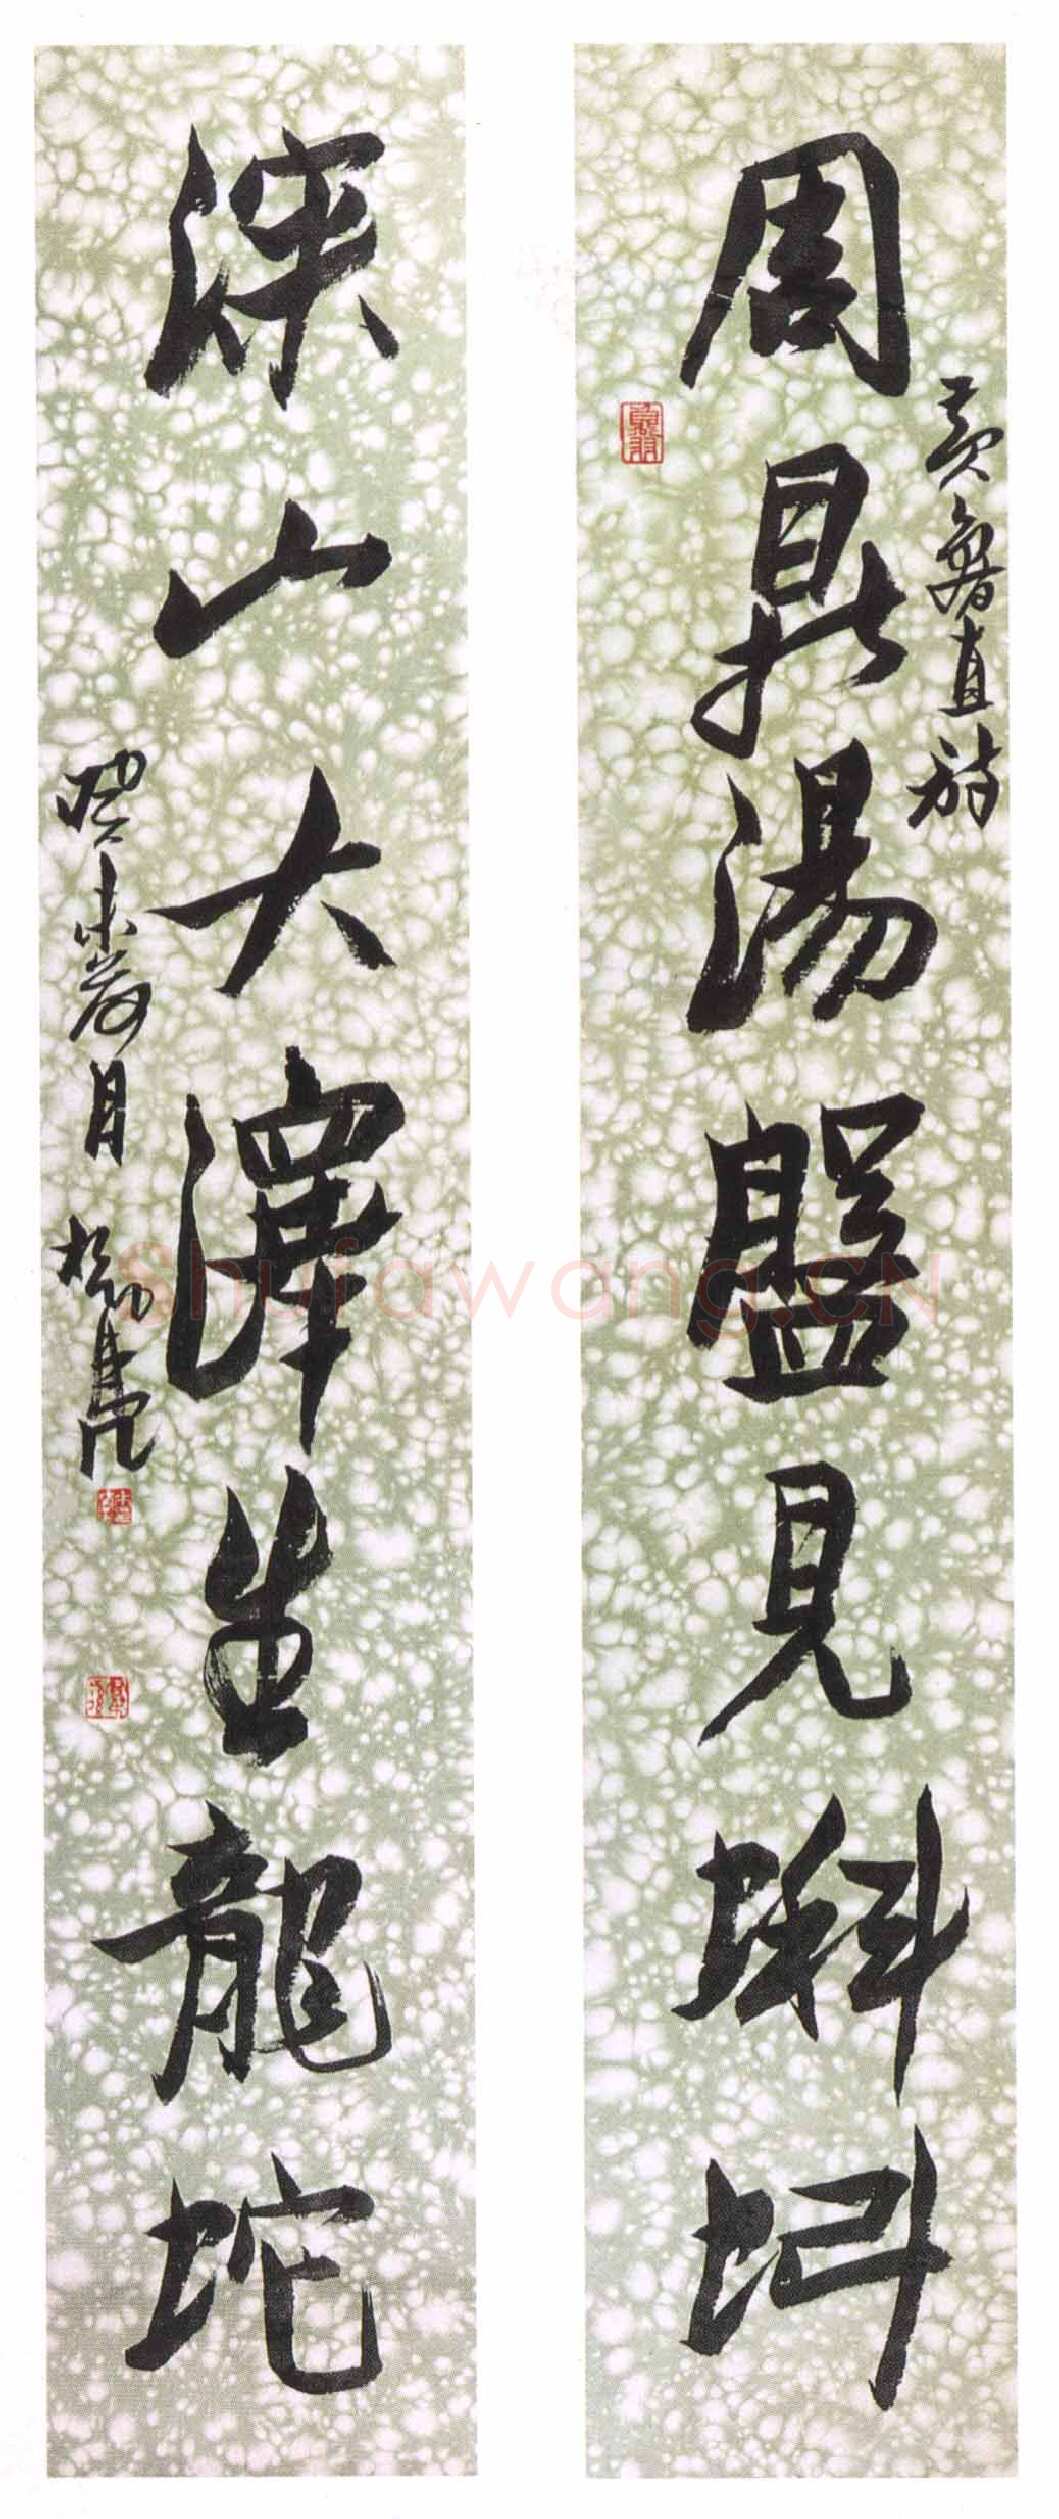 周鼎湯盤見蝌蚪
黃魯直詩
深山大澤生龍蛇
癸未荷月
shufawang.CN